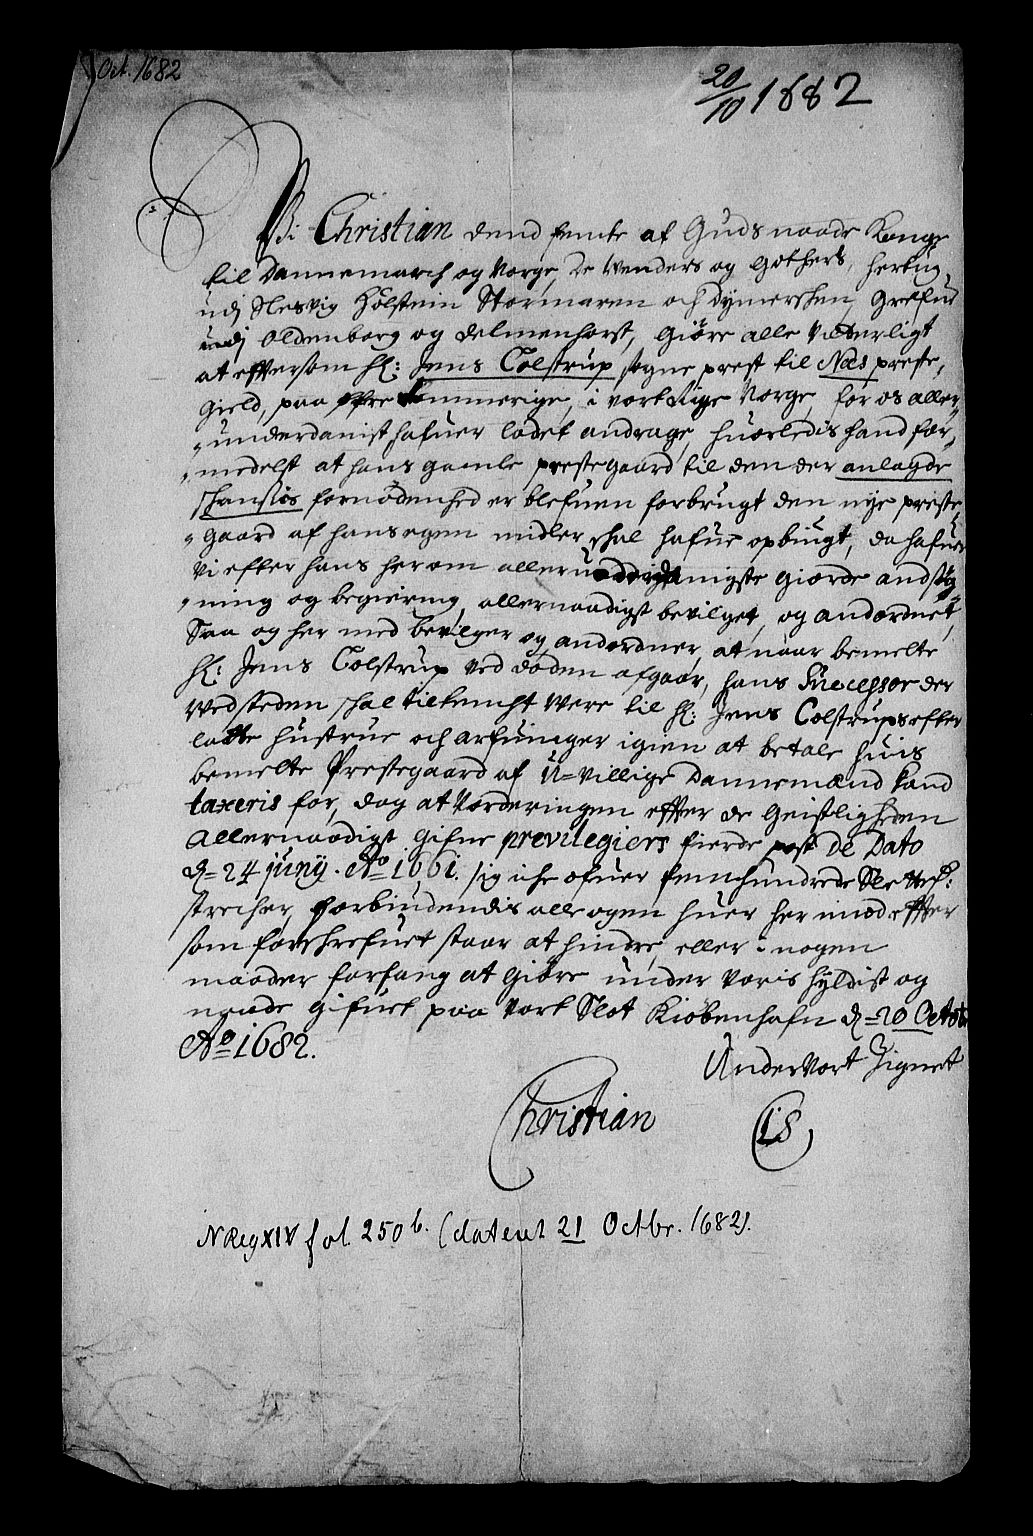 Oct. 1682
20/10 1682
Vi Christian dend femte af Guds naade Konge
til Dannemarch og Norge, De Wenders og Gothers, hertug
udj Slesvig Holstein Stormaren och Dymerschen, Grefue
udj Oldenborg og Delmenhorst, Giøre alle Vitterligt
at eftersom Hr: Jens Colstrup sogne prest til Næs preste,
gield, paa Øfre Rommerige, i vort Rige Norge, for os aller-
underdanist hafuer ladet andrage, huorledis hand for-
medelst at hans gamle prestegaard til den der anlagde
schansis fornødenhed er blefuen forbrugt den nye preste
gaard af hans egen midler schal hafue opbiugt, da hafuer
Vi efter hans herom allerunderdanigste giorde andsøg-
ning og begiering, allernaadigst bevilget, og andordnet,
Saa og her med bevilger og andordner, at naar bemelte
Hr: Jens Colstrup ved døden afgaar, hans Successor der
ved steden schal tilkencht were til Hr: Jens Colstrups efter
latte hustrue och arfuinger igien at betale huis
bemelte Prestegaard af U=villige Dannemænd kand
taxeris for, dog at Vorderingen effter de Geistligheden
Allernaadigst gifne previlegiers fierde post De Dato
d= 24 Junij. Ao 1661. sig iche ofuer femhundrede Slettedr:
strecher, Forbiudendis alle og en huer her imod effter
som forschrefuet staar at hindre, eller i nogen
maader forfang at giøre under Voris hyldist og
naade gifuet paa Vort Slot Kiøbenhafn d= 20 Octob
Ao 1682.
Under Vort Zignet
Christian
LS
NRegXIV fol. 250 b. (dateret 21 Octbr. 1682).